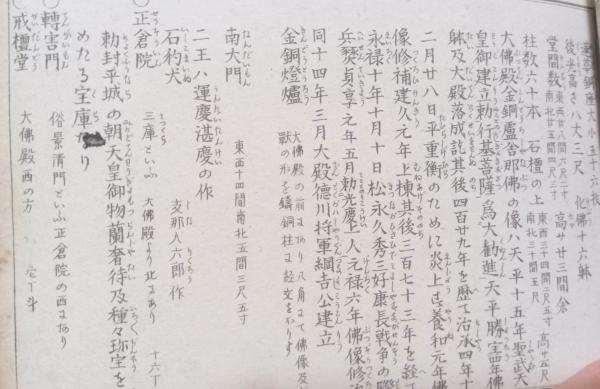 蓮華銅座大小五十六枚
後光高サ八丈三尺 化佛十六躰
堂間数 東西廿八間六尺二寸 南北廿五間四尺 高サ廿三間余
柱数六十本 石檀の上 東西三十四間三尺五寸 南北三十間五尺 高サ五尺
大佛殿金銅盧舎那佛の像ハ天平十五年聖武天
皇御建立勅行基菩薩為大勧進天平勝宝四年佛
躰及大殿落成す其後四百廿九年を歴て治承四年十
二月廿八日平重衡のために炎上す養和元年佛
像修補建久元年上棟其後三百七十三年を経て
永禄十年十月十日松永久秀三好康長戦争の際
兵燹貞享元年五月勅光慶上人元禄六年佛像修
同十四年三月大殿德川将軍綱吉公建立
金銅燈爐 大佛殿の前にあり八角にて佛像及
獣の形を鋳銅柱に経文をかりす
南大門 東西十四間南北五間三尺五寸
二王ハ運慶湛慶の作
石杓犬 支那人六郎作
○正倉院 三庫といふ 大佛殿より北にあり 十六丁
勅封平城の朝天皇御物蘭奢待及種々珎宝を
めたる宝庫なり
○轉害門 俗景清門といふ正倉院の西にあり
○戒檀堂 大佛殿西の方 壱丁斗